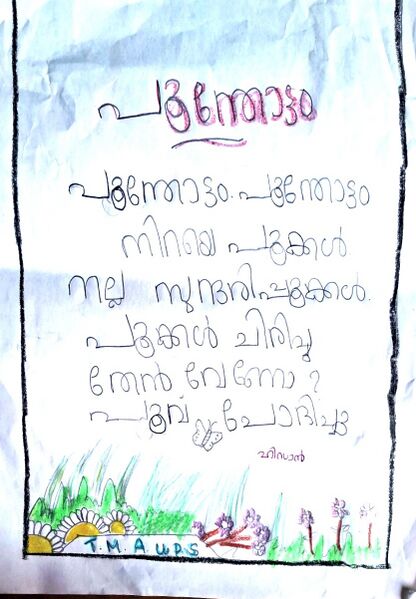 പൂന്തോട്ടം
പൂന്തോട്ടം. പൂന്തോട്ടം
നിറയെ പൂക്കൾ
നല്ല സുന്ദരിപ്പൂക്കൾ.
പൂക്കൾ ചിരിച്ചു
തേൻ വേണോ ?
പൂവ് ചോദിച്ചു
ഹിസാൻ
T.M.A U.P.S